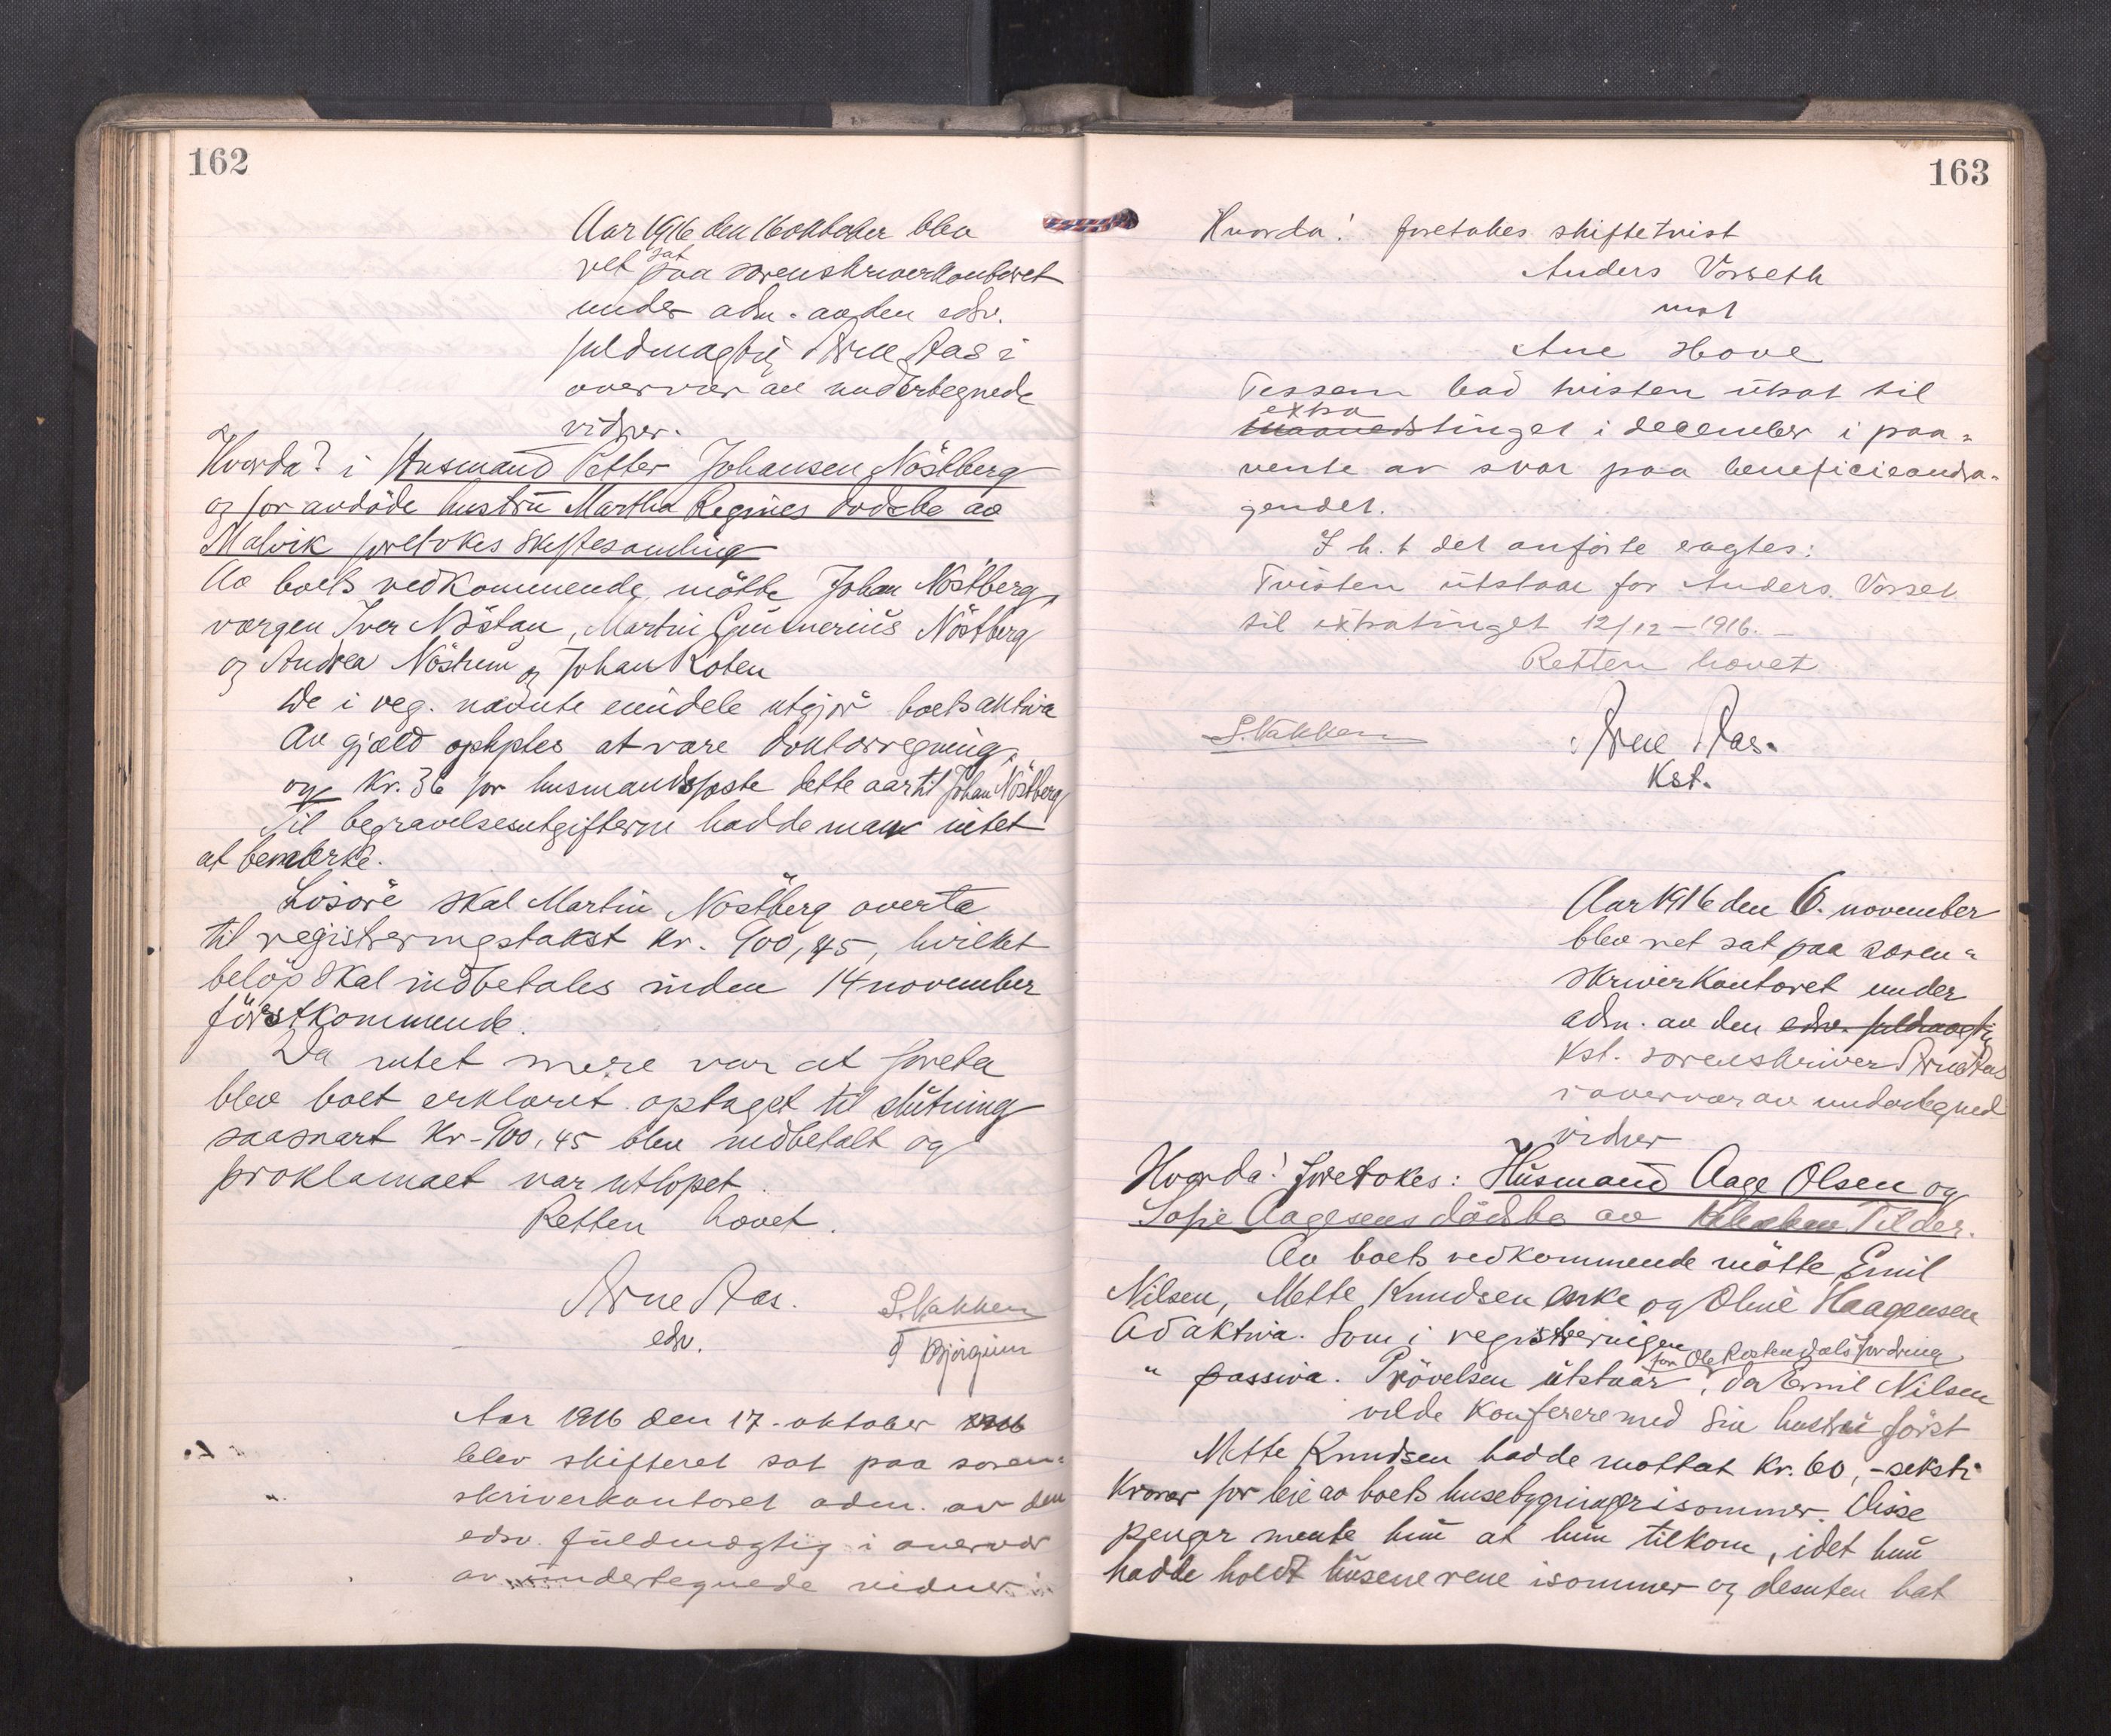 162
Aar 1916 den 16 oktober blev
ret sat paa sorenskriverkontoret
under adm. av den edsv.
fuldmægtig Arne Aas i
overvær av undertegnede
vidner.
Hvorda? i Husmand Petter Johansen Nöstberg
og for avdöde hustru Martha Regines dödsbo av
Malvik foretokes skiftesamling
Av boets vedkommende mötte Johan Nöstberg,
værgen Iver Nöstan, Martin Gunnerius Nöstberg
og Andrea Nöstrum og Johan Roten
De i reg. nævnte eiendele utgjör boets aktiva
Av gjæld oplystes at være doktorregning,
og kr. 36 for husmandsfæste dette aar til Johan Nöstberg
Til begravelsesutgifterne hadde man intet
at bemærke.
Lösöre skal Martin Nöstberg overta
til registreringstakst kr. 900,45, hvilket
belöp skal indbetales inden 14 november
förstkommende.
Da intet mere var at foreta
blev boet erklæret optaget til slutning
saasnart kr. 900,45 blev indbetalt og
proklamaet var utlöpet.
Retten hævet.
Arne Aas.
edsv.
S. Nakken
Bjørgum
Aar 1916 den 17. oktober 1916
blev skifteret sat paa soren-
skriverkontoret adm. av den
edsv. fuldmægtig i overvær
av undertegnede vidner:
163
Hvorda! foretokes skiftetvist
Anders Vorseth
mot
Ane Hove
Tessem bad tvisten utsat til
extra
maanedstinget i december i paa-
vente av svar paa beneficieandra-
gendet.
I h. t det anförte vagtes:
Tvisten utstaar for Anders Vorset
til extratinget 12/12-1916.-
Retten hævet
S. Nakken
Arne Aas.
Kst.
Aar 1916 den 6. november
blev ret sat paa soren-
skriverkontoret under
adm. av den edsv. fuldmægtig
Kst. sorenskriver Arne Aas
i overvær av undertegned
vidner
Hvorda! foretokes: Husmand Aage Olsen og
Sofie Aagesens dödsbo av Tilder.
Av boets vedkommende mötte Emil
Nilsen, Mette Knudsen enke og Oline Haagensen
Ad aktiva. Som i registreringen
for Ole Rostendals fordring
" passiva. Prövelsen utstaar, da Emil Nilsen
vilde konferere med sin hustru först
Mette Knudsen hadde mottat kr. 60,- seksti
kroner for leie av boets husebygninger isommer. Disse
penger mente hun at hun tilkom, idet hun
hadde holdt husene rene isommer og desuten hat